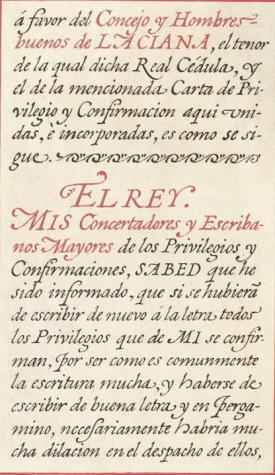 á favor del Concejo y Hombres-
buenos de LACIANA, el tenor
de la qual dicha Real Cédula, y
el de la mencionada Carta de Pri-
vilegio y Confirmacion aqui vni-
das, è incorporadas, es como se si-
gue.
EL REY.
MIS Concertadores y Escriba-
nos Mayores de los Privilegios y
Confirmaciones, SABED que he
sido informado, que si se hubierã
de escribir de nuevo á la letra todos
los Privilegios que de MI se confir-
man, por ser como es comunmente
la escritura mucha, y haberse de
escribir de buena letra y en perga-
mino, necesariamente habria mu-
cha dilacion en el despacho de ellos,